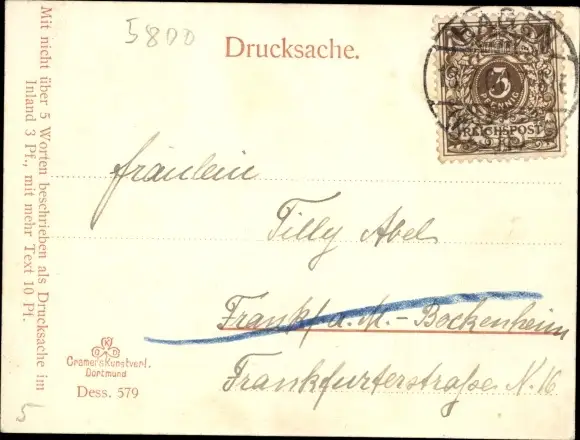 5800
Drucksache.
3
PFENNIG
REICHSPOST
Mit nicht über 5 Worten beschrieben als Drucksache im
Inland 3 Pf., mit mehr Text 10 Pf.
Fräulein
Tilly Abel
Frankf. a. M. - Bockenheim
Frankfurterstraße N. 16
Cramers Kunstverl.
Dortmund
Dess. 579
5